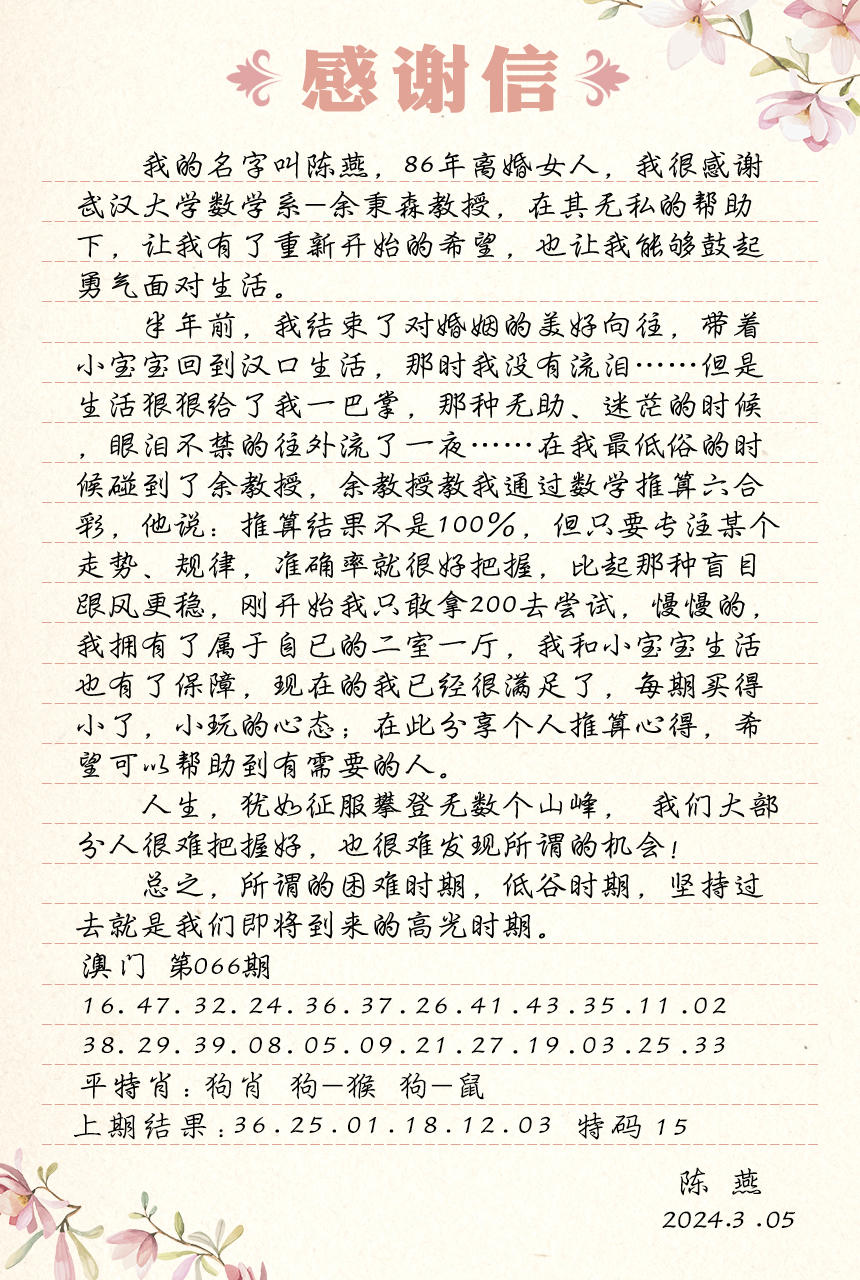 感谢信
我的名字叫陈燕，86年离婚女人，我很感谢
武汉大学数学系—余秉森教授，在其无私的帮助
下，让我有了重新开始的希望，也让我能够鼓起
勇气面对生活。
半年前，我结束了对婚姻的美好向往，带着
小宝宝回到汉口生活，那时我没有流泪……但是
生活狠狠给了我一巴掌，那种无助、迷茫的时候
，眼泪不禁的往外流了一夜……在我最低俗的时
候碰到了余教授，余教授教我通过数学推算六合
彩，他说：推算结果不是100%，但只要专注某个
走势、规律，准确率就很好把握，比起那种盲目
跟风更稳，刚开始我只敢拿200去尝试，慢慢的，
我拥有了属于自已的二室一厅，我和小宝宝生活
也有了保障，现在的我已经很满足了，每期买得
小了，小玩的心态；在此分享个人推算心得，希
望可以帮助到有需要的人。
人生，犹如征服攀登无数个山峰， 我们大部
分人很难把握好，也很难发现所谓的机会！
总之，所谓的困难时期，低谷时期，坚持过
去就是我们即将到来的高光时期。
澳门 第066期
16.47.32.24.36.37.26.41.43.35.11.02
38.29.39.08.05.09.21.27.19.03.25.33
平特肖：狗肖 狗—猴 狗—鼠
上期结果：36.25.01.18.12.03 特码 15
陈 燕
2024.3.05